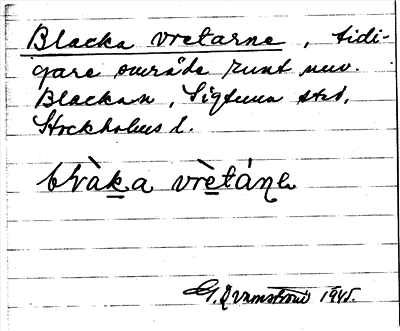 Blacka vretarne, tidi-
gare område runt nuv.
Blackan, Sigtuna std,
Stockholms l.
vrètáṇe
1945.